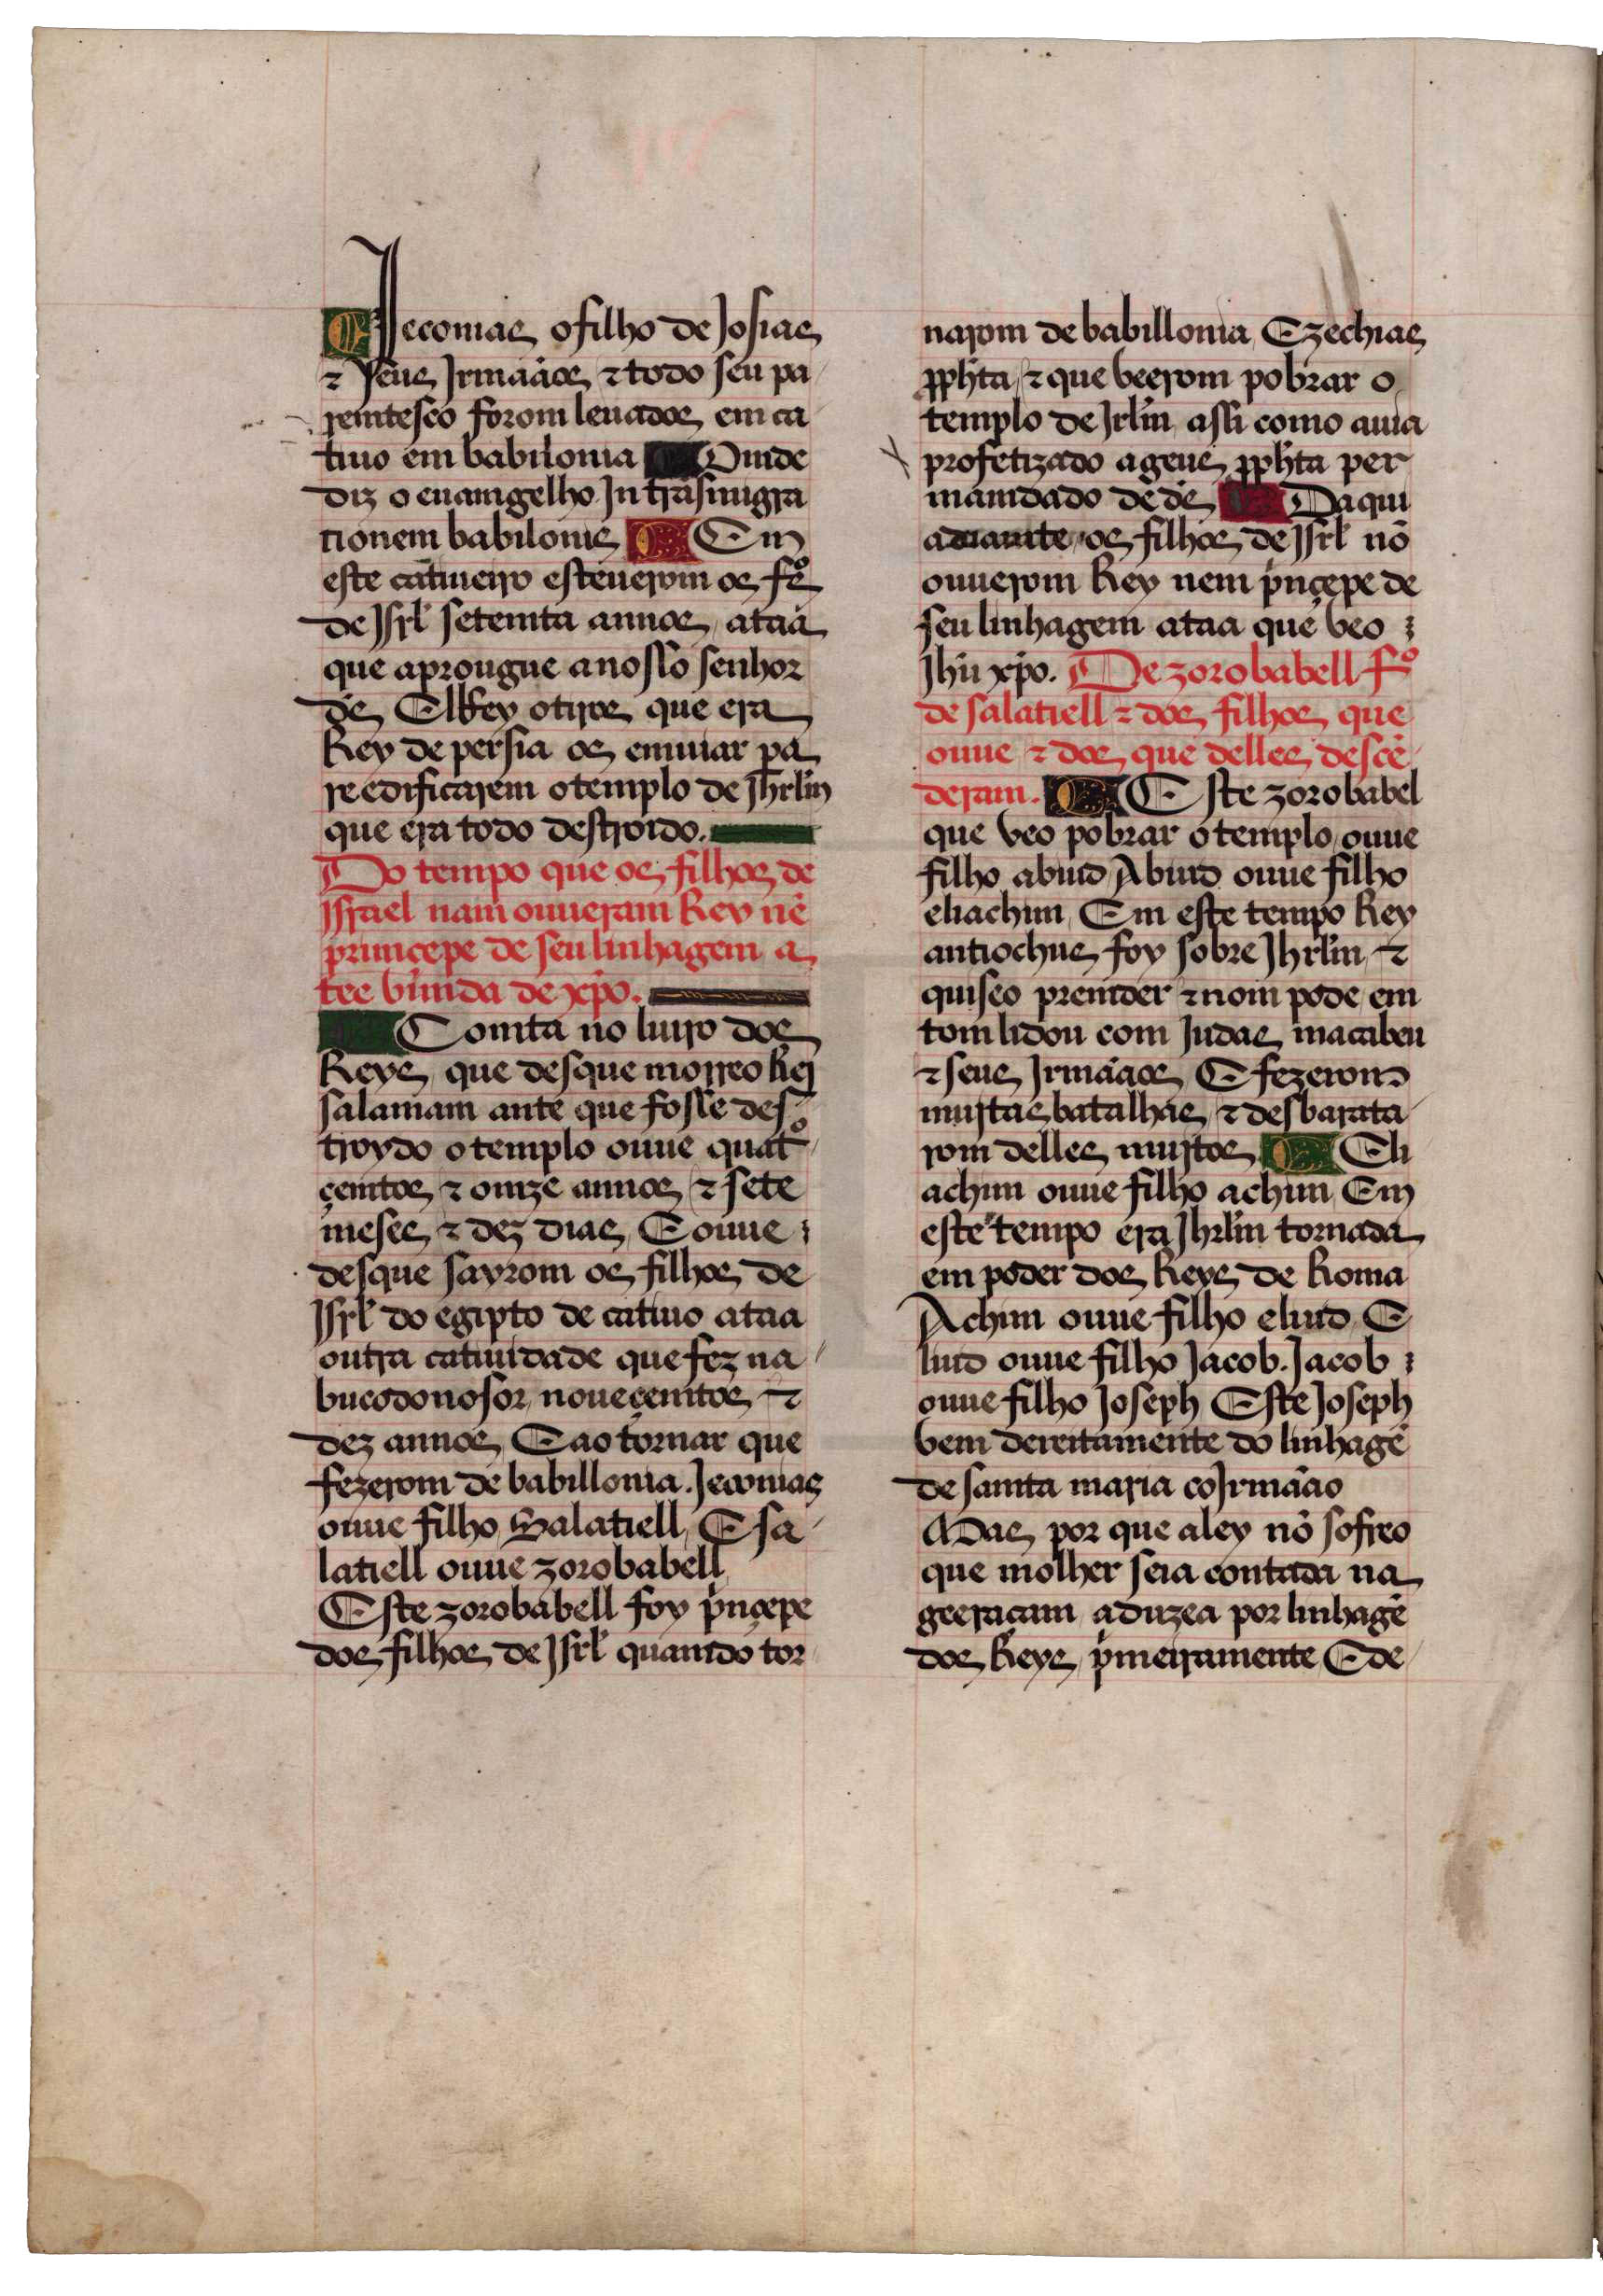 Jeconias o filho de Josias
⁊ seus Jrmããos ⁊ todo seu pa
remtesco forom leuados em ca
tiuo em babilonia Omde
diz o euamgelho Jn trãsmigra
tionem babilonis Em
este catiueiro esteuerom os fºs
de Jsrł setemta annos ataa
que aprougue a nosso senhor
d̃s El Rey otiros que era
Rey de persia os emuiar pa
reedificarem o templo de Jhrl̃m
que era todo destroido.
Do tempo que os filhos de
Jsrael nam ouueram Rey nẽ
primçepe de seu linhagem a
tee vimda de xp̃o.
Comta no liuro dos
Reys que desque morreo Rej
salamam ante que fosse des
troydo o templo ouue quatº
çemtos ⁊ omze annos ⁊ sete
meses ⁊ dez dias E ouue
desque sayrom os filhos de
Jsrł do egipto de catiuo ataa
outra catiuidade que fez na
bucodonosor noueçemtos ⁊
dez annos E ao tornar que
fezerom de babillonia. Jeconias
ouue filho Salatiell E sa
latiell ouue zorobabell
Este zorobabell foy pͥnçepe
dos filhos de Jsrł quamdo tor
narom de babillonia Ezechias
ꝓph̃ta ⁊ que veerom pobrar o
templo de Jrl̃m assi como auia
profetizado ageus ꝓph̃ta per
mamdado de d̃s Daqui
adiamte os filhos de Jsrł nõ
ouuerom Rey nem pͥnçepe de
seu linhagem ataa que veo
Jhũ xp̃o. De zorobabell fº
de salatiell ⁊ dos filhos que
ouue ⁊ dos que delles descẽ
deram. Este zorobabel
que veo pobrar o templo ouue
filho abiud Abiud ouue filho
eliachim Em este tempo Rey
antiochus foy sobre Jhrl̃m ⁊
quiseo premder ⁊ nom pode em
tom lidou com Judas macabeu
⁊ seus Jrmããos E fezerom
muitas batalhas ⁊ desbarata
rom delles muitos Eli
achim ouue filho achim Em
este tempo era Jhrl̃m tornada
em poder dos Reys de Roma
Achim ouue filho eliud E
liud ouue filho Jacob. Jacob
ouue filho Joseph Este Joseph
vem dereitamente do linhagẽ
de samta maria coJrmãao
Mas por que a ley nõ sofreo
que molher seia contada na
geeraçam aduzea por linhagẽ
dos Reys pͥmeiramente E de